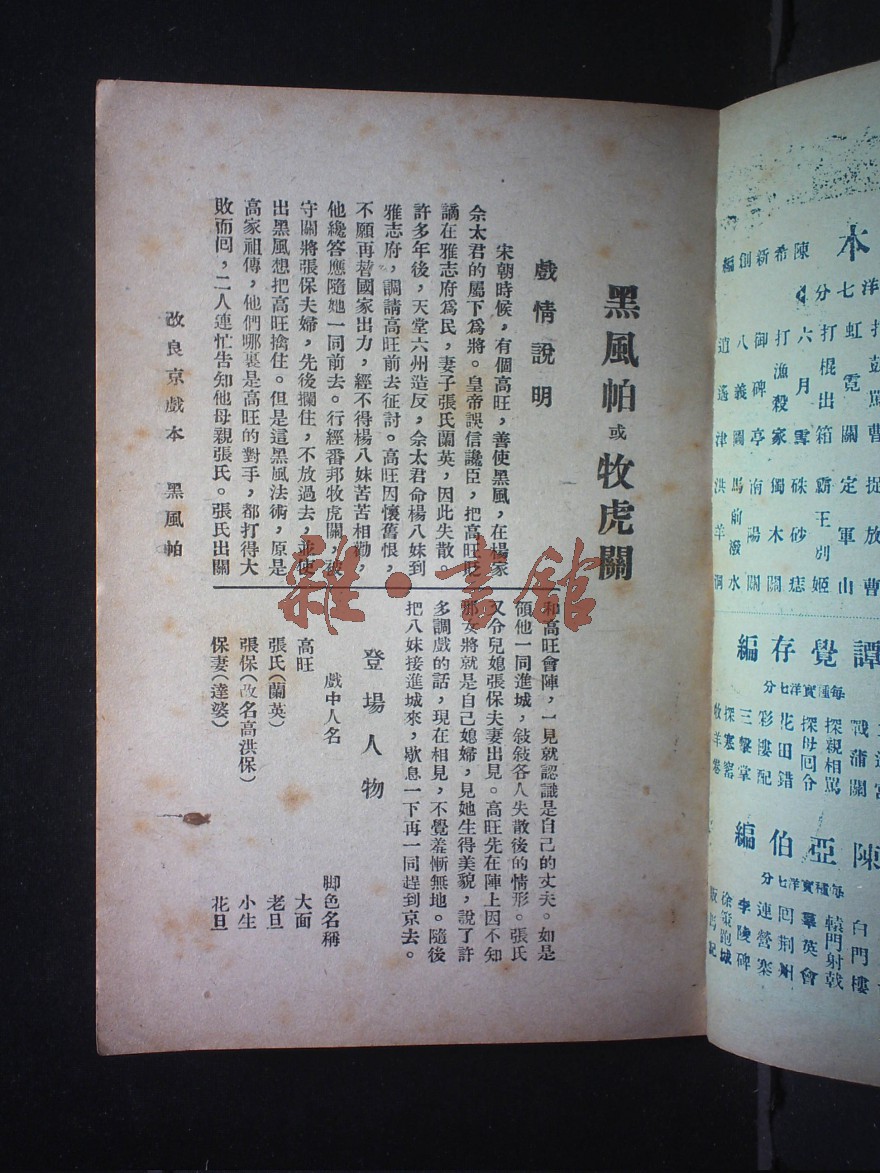 黑風帕或牧虎關
戲情說明
宋朝時候，有個高旺，善使黑風，在楊家
佘太君的屬下爲將。皇帝誤信讒臣，把高旺貶
謫在雅志府爲民，妻子張氏蘭英，因此失散。
許多年後，天堂六州造反，佘太君命楊八妹到
雅志府，調請高旺前去征討。高旺因懷舊恨，
不願再替國家出力，經不得楊八妹苦苦相勸，
他纔答應隨她一同前去。行經番邦牧虎關，被
守關將張保夫婦，先後攔住，不放過去，並使
出黑風想把高旺擒住。但是這黑風法術，原是
高家祖傳，他們哪裏是高旺的對手，都打得大
敗而囘，二人連忙告知他母親張氏。張氏出關
和高旺會陣，一見就認識是自己的丈夫。如是
領他一同進城，敍敍各人失散後的情形。張氏
又令兒媳張保夫妻出見。高旺先在陣上因不知
那女將就是自己媳婦，見她生得美貌，說了許
多調戲的話，現在相見，不覺羞慚無地。隨後
把八妹接進城來，歇息一下再一同趕到京去。
登場人物
戲中人名　脚色名稱
高旺　大面
張氏（蘭英）　老旦
張保（改名高洪保）　小生
保妻（達婆）　花旦
改良京戲本　黑風帕
雜·書館
本
陳希新創編
洋七分
打鼓罵曹　捉放曹
虹霓關　定軍山
打棍出箱　霸王別姬
六月雪　硃砂痣
打漁殺家　獨木關
御碑亭　南陽關
八義圖　馬前潑水
逍遙津　洪羊洞
譚覺存編
每種實洋七分
戰蒲關
探親相罵
探母回令
花田錯
彩樓配
三擊掌
探寒窑
牧羊卷
陳亞伯編
每種實洋七分
白門樓
轅門射戟
羣英會
回荆州
連營寨
李陵碑
徐策跑城